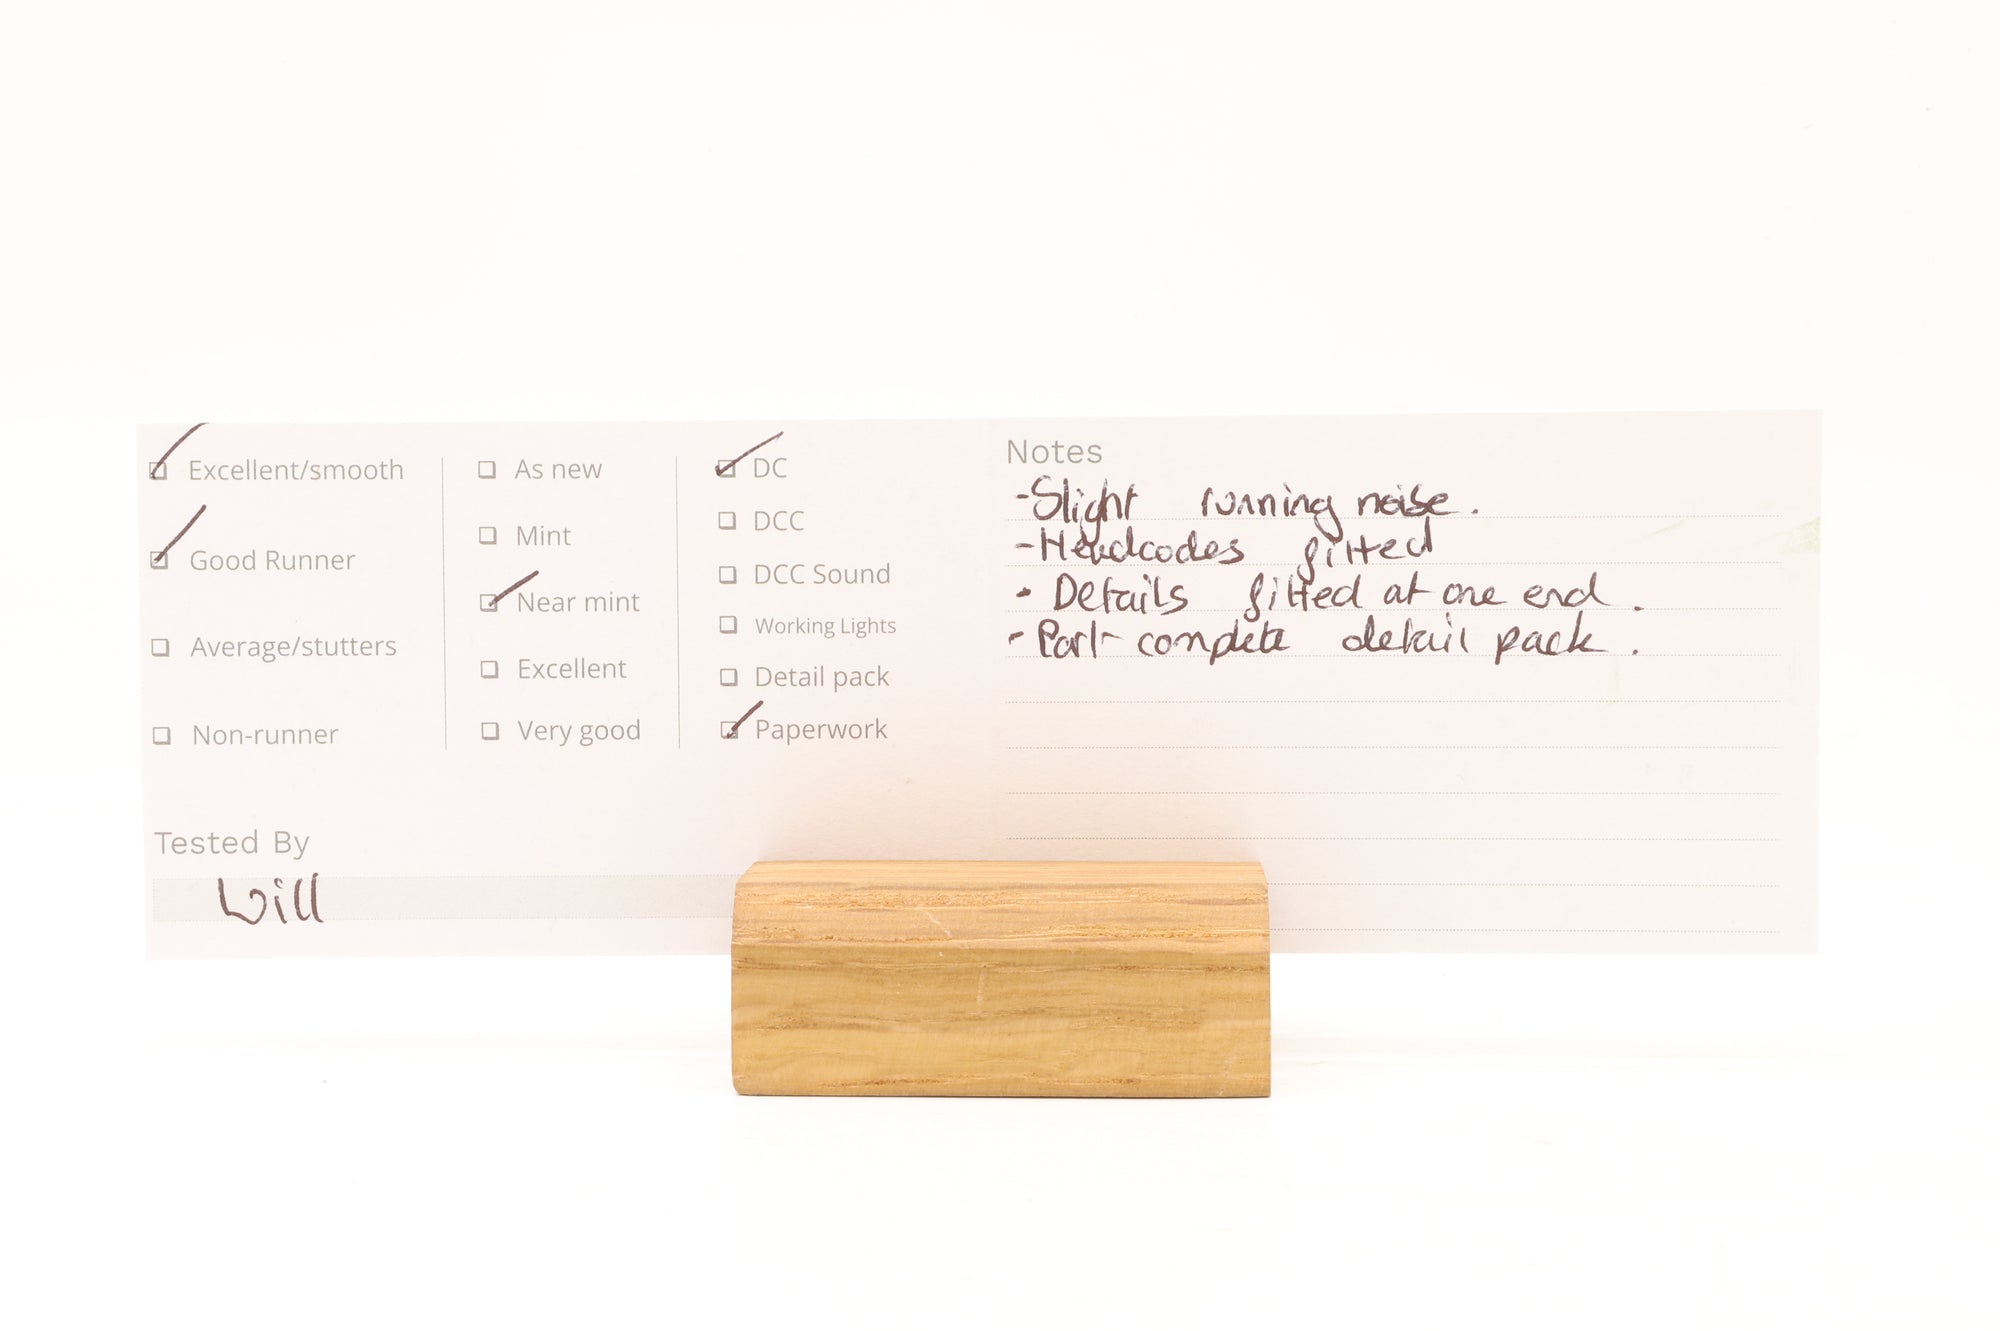 Excellent/smooth
Good Runner
Average/stutters
Non-runner
As new
Mint
Near mint
Excellent
Very good
DC
DCC
DCC Sound
Working Lights
Detail pack
Paperwork
Tested By
Will
Notes
-Slight running noise.
-Headcodes fitted
- Details fitted at one end.
- Part-complete detail pack.